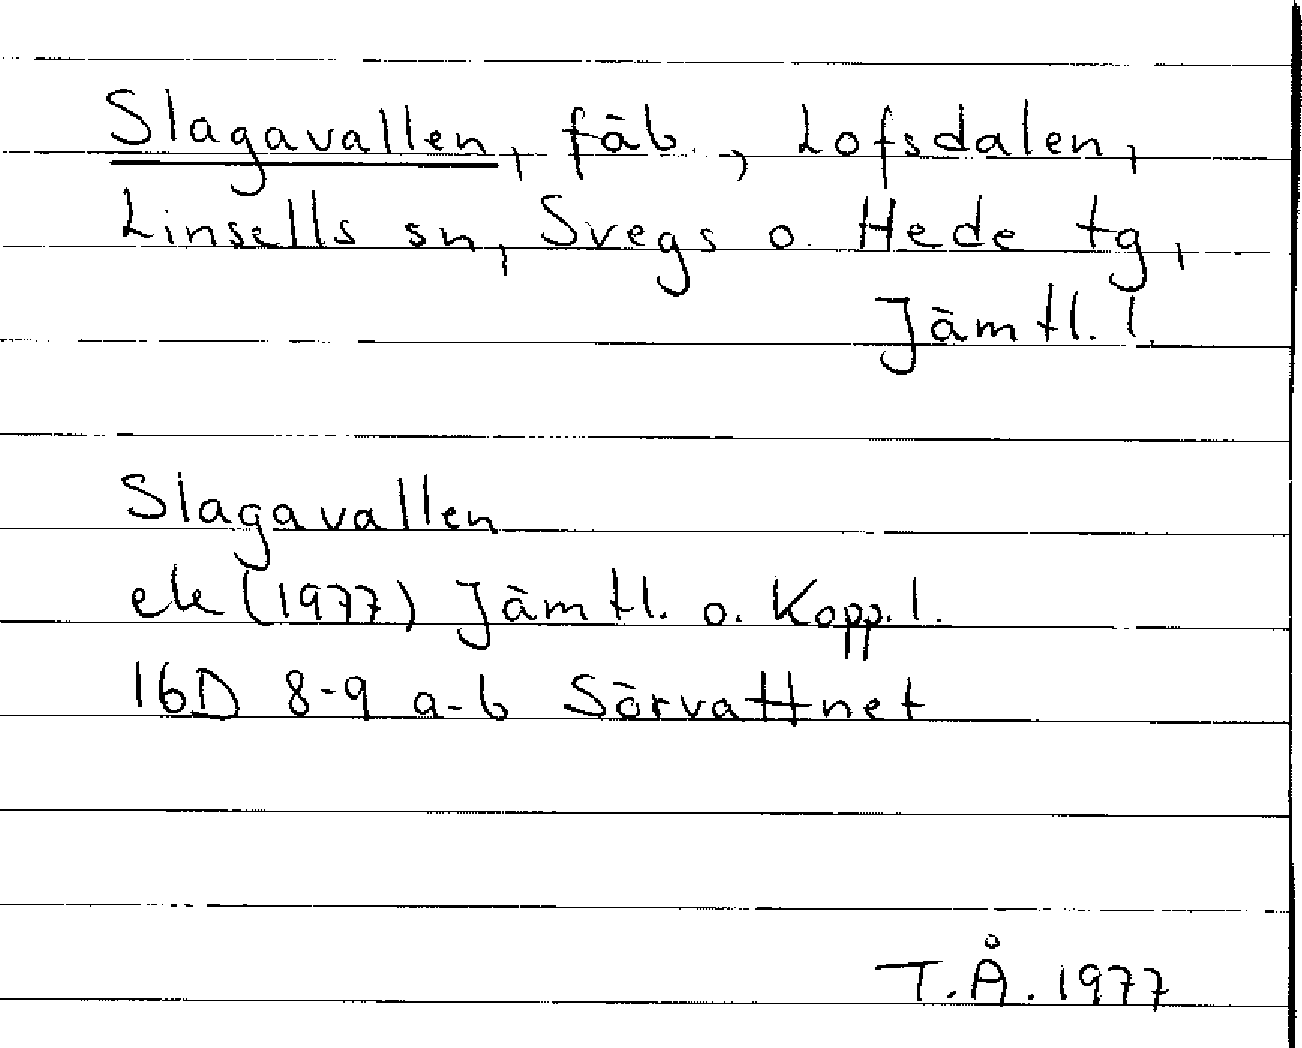 Slagavallen, fäb., Lofsdalen,
Linsells sn, Svegs o. Hede tg,
Jämtl. l.
Slagavallen
ek (1977) Jämtl. o. Kopp. l.
16D 8-9 a-b Sörvattnet
T.Å. 1977